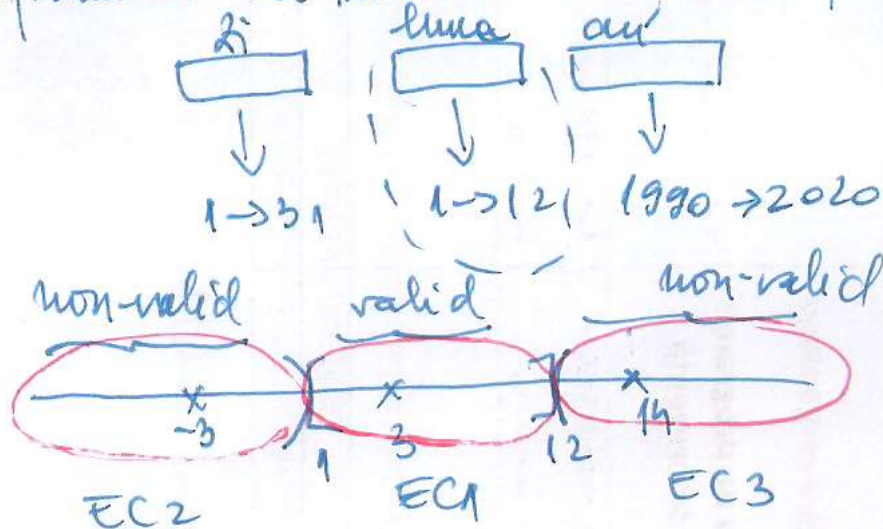 zi luna an
1→31 1→12 1990→2020
non-valid valid non-valid
-3 3 14
1 12
EC2 EC1 EC3